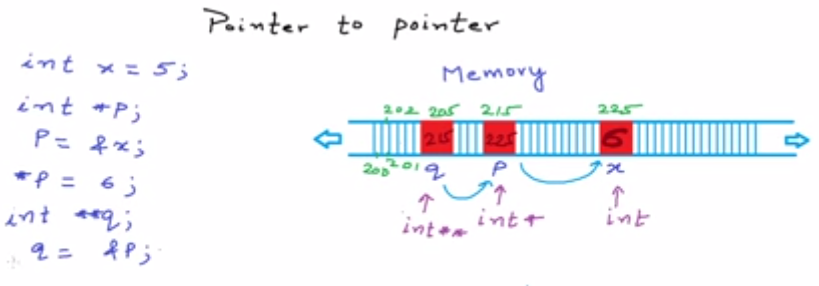 Pointer to pointer
int x = 5;
int *P;
P = &x;
*P = 6;
int **q;
q = &P;
Memory
202 205 215 225
215 225 6
200 201 q P x
int** int* int